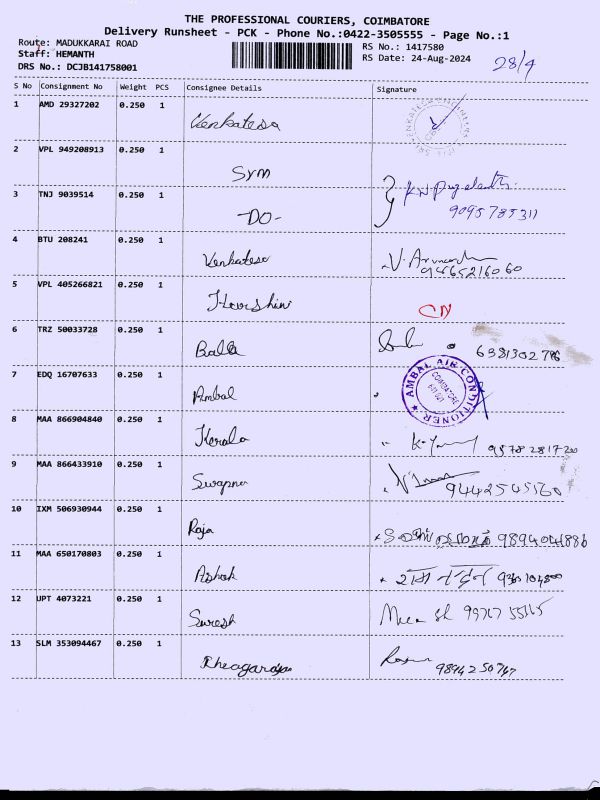 THE PROFESSIONAL COURIERS, COIMBATORE
Delivery Runsheet - PCK - Phone No.:0422-3505555 - Page No.:1
Route: MADUKKARAI ROAD
Staff: HEMANTH
DRS No.: DCJB141758001
RS No.: 1417580
RS Date: 24-Aug-2024
28/9
S No Consignment No Weight PCS Consignee Details Signature
1 AMD 29327202 0.250 1 Venkatesa
2 VPL 949208913 0.250 1 SVM
3 TNJ 9039514 0.250 1 -DO-
9095785311
4 BTU 208241 0.250 1 Venkatesa
5 VPL 405266821 0.250 1 Harshini CN
6 TRZ 50033728 0.250 1 Balla
7 EDQ 16707633 0.250 1 Ambal AMBAL AIR CONDITIONER COIMBATORE
8 MAA 866904840 0.250 1 Kerala
9 MAA 866433910 0.250 1 Swapna 9442545560
10 IXM 506930944 0.250 1 Raja 9894041886
11 MAA 650170803 0.250 1 Ashok
12 UPT 4073221 0.250 1 Suresh
13 SLM 353094467 0.250 1 9894250767